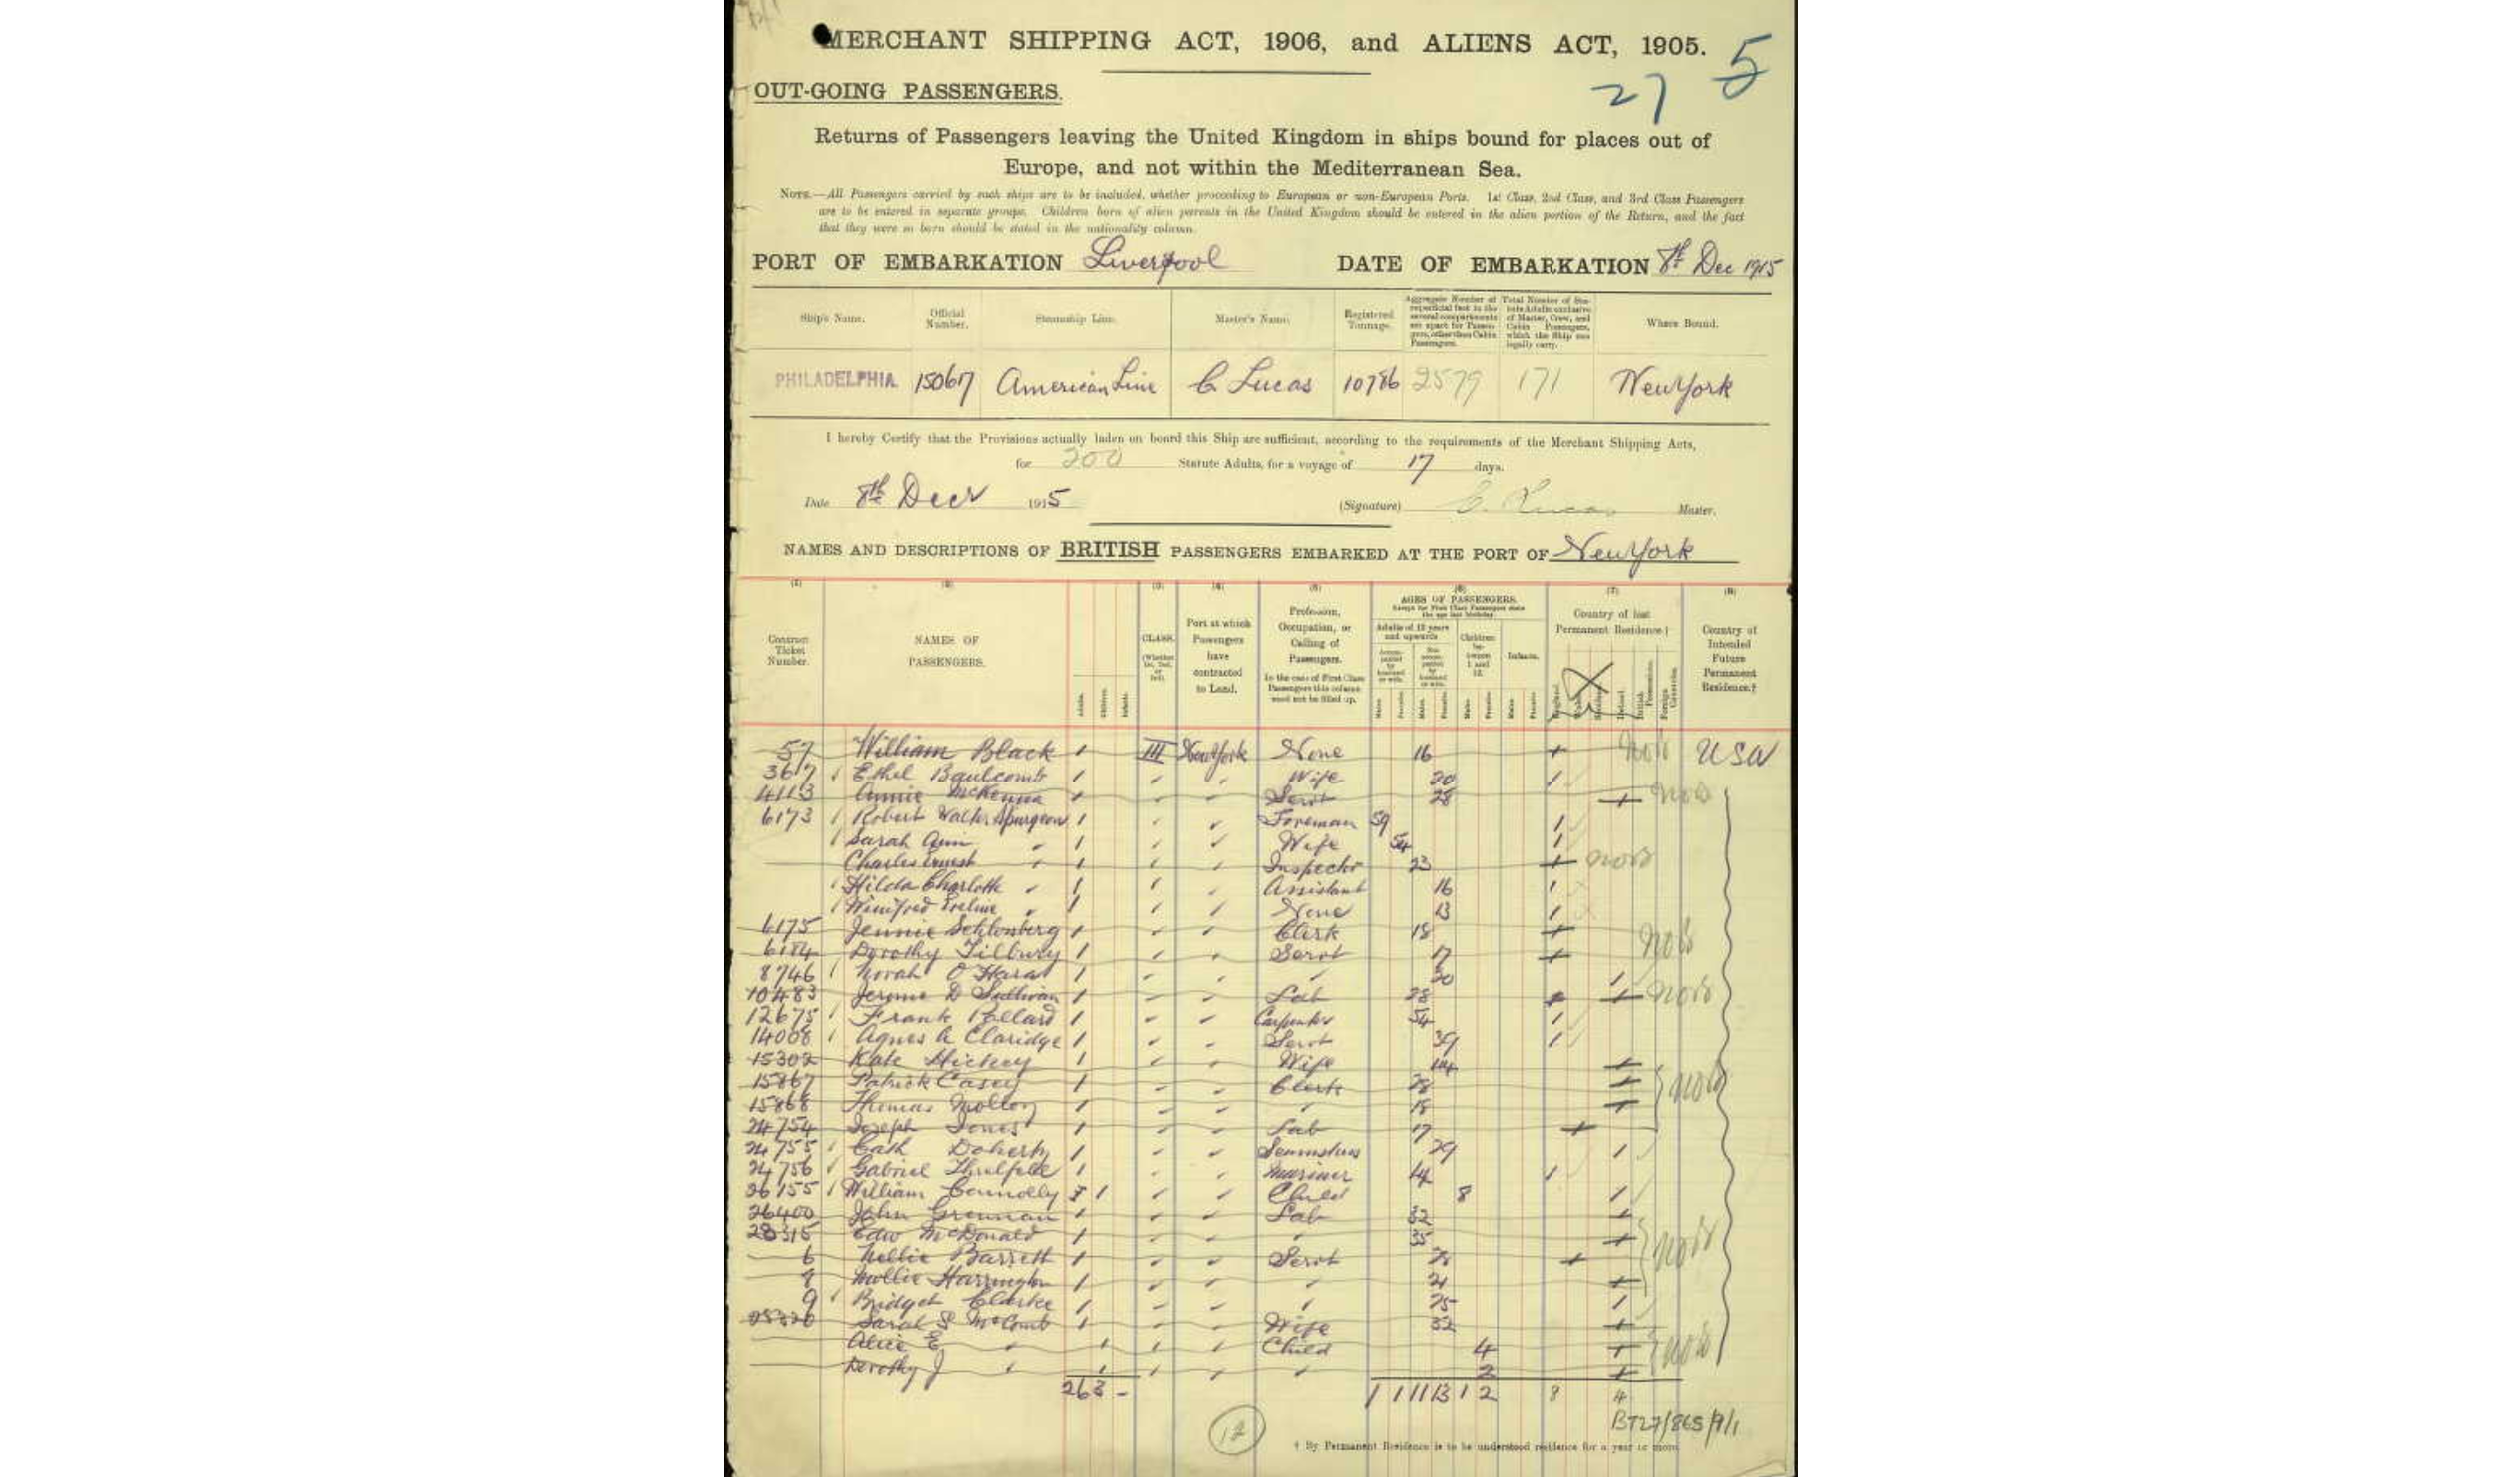 MERCHANT SHIPPING ACT, 1906, and ALIENS ACT, 1905.
27 5
OUT-GOING PASSENGERS.
Returns of Passengers leaving the United Kingdom in ships bound for places out of
Europe, and not within the Mediterranean Sea.
NOTE.—All Passengers carried by such ships are to be included, whether proceeding to European or non-European Ports. 1st Class, 2nd Class, and 3rd Class Passengers
are to be entered in separate groups. Children born of alien parents in the United Kingdom should be entered in the alien portion of the Return, and the fact
that they were so born should be stated in the nationality column.
PORT OF EMBARKATION Liverpool DATE OF EMBARKATION 8th Dec 1915
Ship's Name. Official Number. Steamship Line. Master's Name. Registered Tonnage. Aggregate Number of Superficial feet in the several compartments set apart for Passengers, other than Cabin Passengers. Total Number of Statute Adults exclusive of Master, Crew, and Cabin Passengers, which the Ship can legally carry. Where Bound.
PHILADELPHIA 15067 American Line C Lucas 10786 2579 171 New York
I hereby Certify that the Provisions actually laden on board this Ship are sufficient, according to the requirements of the Merchant Shipping Acts,
for 200 Statute Adults, for a voyage of 17 days.
Date 8th Decr 1915 (Signature) C. Lucas Master.
NAMES AND DESCRIPTIONS OF BRITISH PASSENGERS EMBARKED AT THE PORT OF New York
(1) (2) (3) (4) (5) (6) (7) (8)
Contract Ticket Number. NAMES OF PASSENGERS. Adults. Children. Infants. CLASS. (Whether 1st, 2nd, or 3rd). Port at which Passengers have contracted to Land. Profession, Occupation, or Calling of Passengers. In the case of First Class Passengers this column need not be filled up. AGES OF PASSENGERS. Adults of 12 years and upwards Children between 1 and 12. Infants. Country of last Permanent Residence.† Country of Intended Future Permanent Residence.†
57 William Black 1 III New York None 16 nob USA
3617 Ethel Baulcomb 1 Wife 20 1
4113 Annie McKenna 1 Servt 28 nob
6173 Robert Walter Spurgeon 1 Foreman 59 1
Sarah Ann " 1 Wife 54 1
Charles Ernest " 1 Inspector 23 nob
Hilda Charlotte " 1 Assistant 16 1
Winifred Eveline " 1 None 13 1
6175 Jennie Schlonberg 1 Clerk 18
6184 Dorothy Tilbury 1 Servt 17 nob
8746 Norah O'Hara 1 " 20 1
10483 Jerome D Sullivan 1 Lab 28 nob
12675 Frank Pollard 1 Carpenter 54 1
14008 Agnes A Claridge 1 Servt 39 1
15302 Kate Hickey 1 Wife 44
15867 Patrick Casey 1 Clerk 28 nob
15868 Thomas Molloy 1 " 18
24754 Joseph Jones 1 Lab 17
24755 Cath Doherty 1 Seamstress 29 1
24756 Gabriel 1 Mariner 44 1
26155 William Connolly 1 Child 8 1
26400 John Grennan 1 Lab 32
28315 Edw McDonald 1 " 35 nob
6 Nellie Barrett 1 Servt 28
8 Mollie Harrington 1 " 21
9 Bridget Clarke 1 " 25 1
28320 Sarah S McComb 1 Wife 32
Alice E " 1 Child 4 nob
Dorothy J " 1 " 2
26 3 - 1 1 11 13 1 2 8 4
BT27/865/9/1
12
† By Permanent Residence is to be understood residence for a year or more.